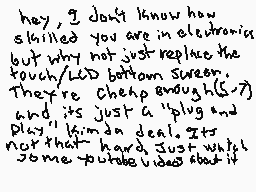 hey, I don't know how
skilled you are in electronics
but why not just replace the
touch/LCD bottom screen.
They're cheap enough (5-7)
and its just a "plug and
play" kinda deal. Its
not that hard, Just watch
some youtube videos about it